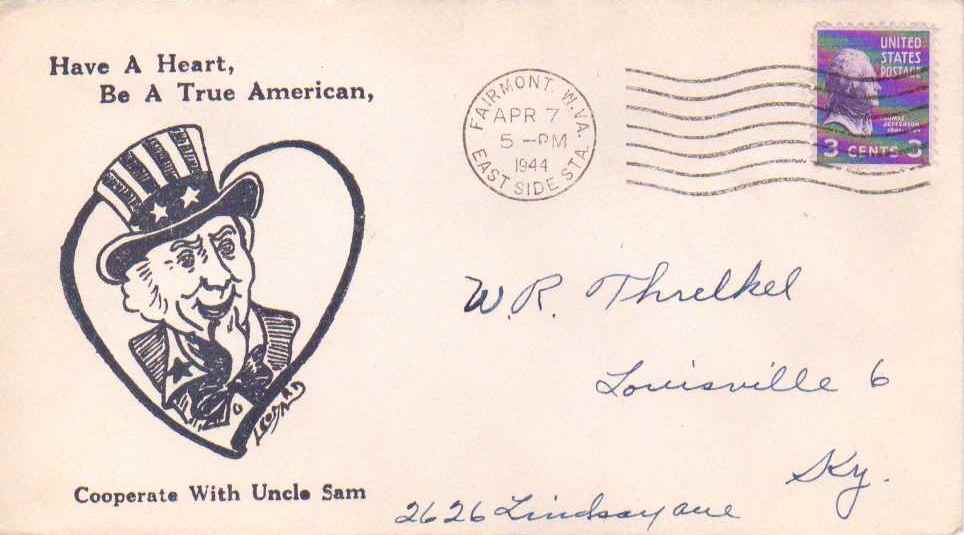 Have A Heart,
Be A True American,
FAIRMONT W.VA.
APR 7
5 -PM
1944
EAST SIDE STA.
UNITED
STATES
POSTAGE
3 CENTS 3
W. R. Threlkel
Louisville 6
Ky.
2626 Lindsay ave
Cooperate With Uncle Sam